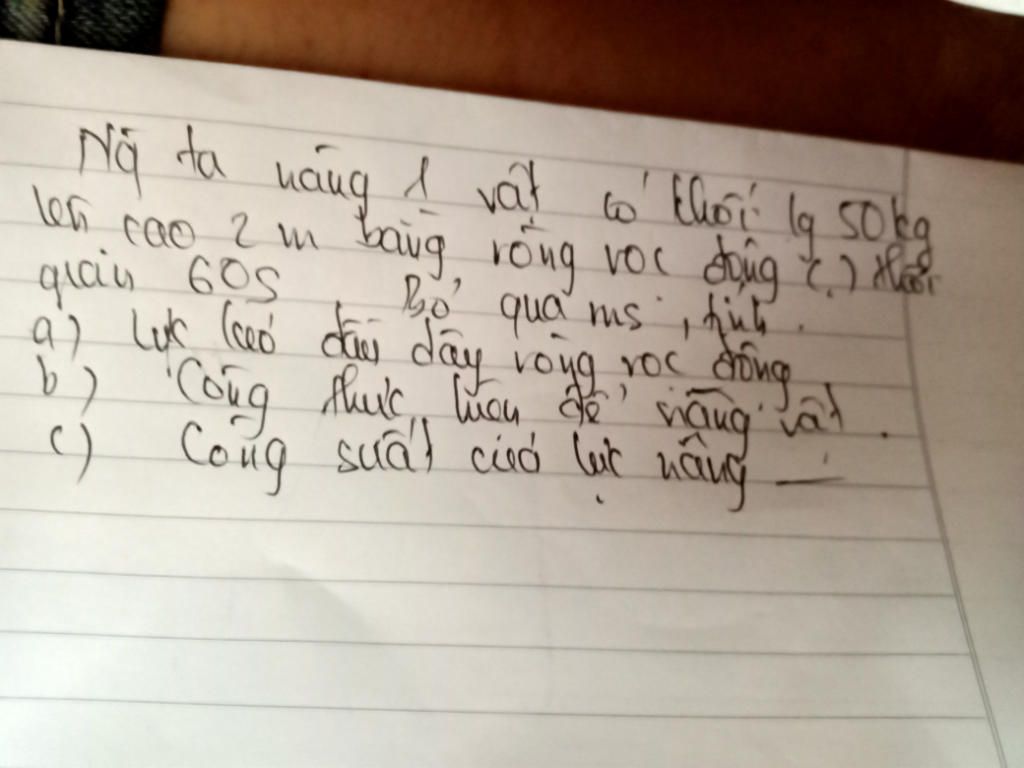 Ng ta nâng 1 vật có khối lg 50kg
lên cao 2 m bằng ròng rọc động (.) thời
gian 60s Bỏ qua ms, tính.
a) lực kéo đầu dây ròng rọc động
b) Công thực hiện để nâng vật.
c) Công suất của lực nâng —